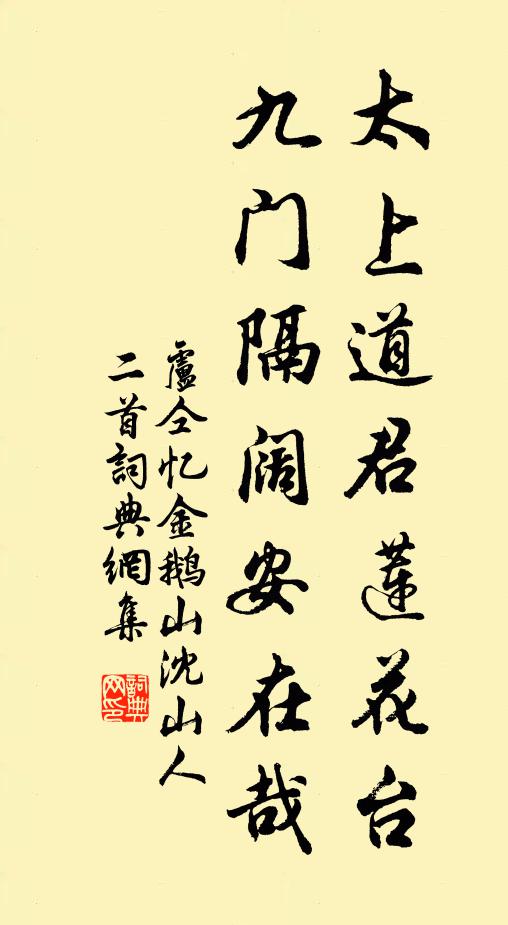 太上道君莲花台
九门隔阔安在哉
盧仝忆金鹅山沈山人
二首詞典網集
詞典
网印